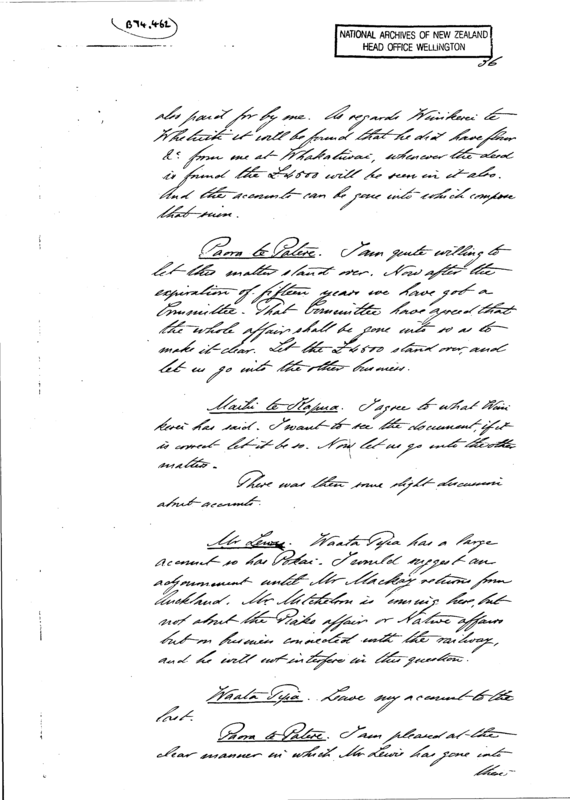 B74.462
NATIONAL ARCHIVES OF NEW ZEALAND
HEAD OFFICE WELLINGTON
36
also paid for by me. As regards Winikerei te
Whetuiti it will be found that he did have flour
&c. from me at Whakatiwai, whenever the deed
is found the £4500 will be seen in it also.
And the accounts can be gone into which compose
that sum.
Paora te Patere. I am quite willing to
let this matter stand over. Now after the
expiration of fifteen years we have got a
Committee. That Committee have agreed that
the whole affair shall be gone into so as to
make it clear. Let the £4500 stand over, and
let us go into the other business.
Maihi te Hapua. I agree to what Wini
kerei has said. I want to see the document, if it
is correct let it be so. Now let us go into the other
matters.
There was then some slight discussion
about accounts.
Mr Lewis. Waata Tipa has a large
account so has Pokai. I would suggest an
adjournment until Mr Mackay returns from
Auckland. Mr Mitchelson is coming here, but
not about the Piako affair or Native affairs
but on business connected with the railway,
and he will not interfere in this question.
Waata Tipa. Leave my account to the
last.
Paora te Patere. I am pleased at the
clear manner in which Mr Lewis has gone into
these